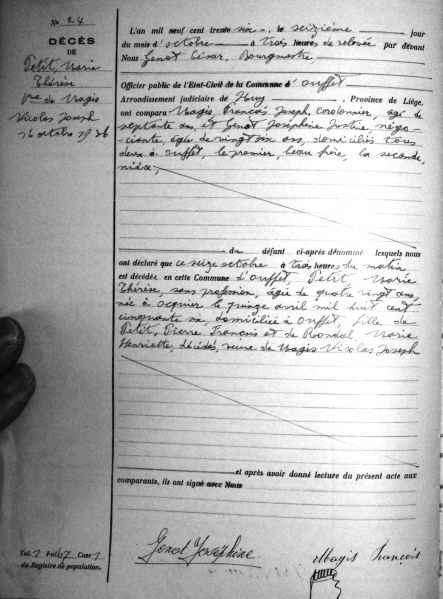 No 24
DÉCÈS
DE
Petit, Marie
Thérèse
Vve de Magis
Nicolas Joseph
16 octobre 1936
L'an mil neuf cent trente six, le seizième jour
du mois d'octobre à trois heures de relevée par devant
Nous Genot César, Bourgmestre
Officier public de l'Etat-Civil de la Commune d'Ouffet
Arrondissement judiciaire de Huy, Province de Liége,
ont comparu Magis, François Joseph, cordonnier, âgé de
septante ans, et Genot Joséphine Justine négo-
ciante, âgée de vingt six ans, domiciliés tous
deux à Ouffet, le premier, beau frère, la seconde,
nièce,
du défunt ci-après dénommé lesquels nous
ont déclaré que ce seize octobre à trois heures du matin
est décédée en cette Commune d'Ouffet, Petit, Marie
Thérèse, sans profession, âgée de quatre vingt ans,
née à Ocquier le quinze avril mil huit cent
cinquante six, domiciliée à Ouffet, fille de
Petit, Pierre François et de Marie
Henriette, décédés, veuve de Magis Nicolas Joseph
et après avoir donné lecture du présent acte aux
comparants, ils ont signé avec Nous
Genot Joséphine
Magis François
Vol. 2 Fol. 67 Case 1
du Registre de population.